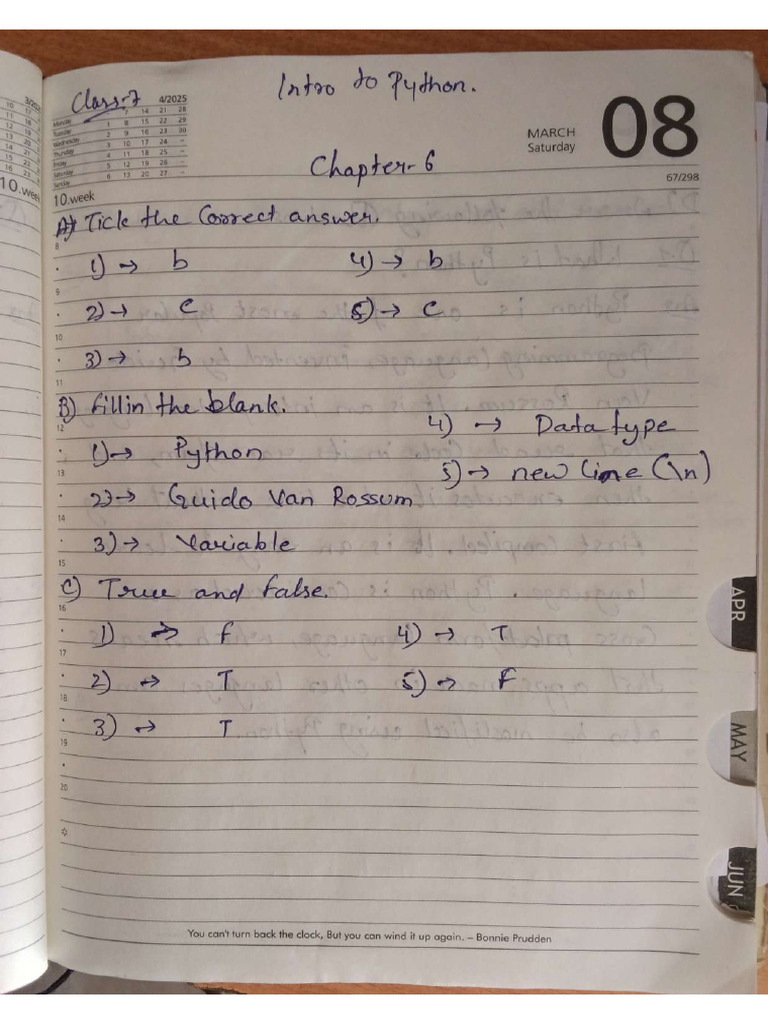 Intro to Python.
Class-7
4/2025
Monday 7 14 21 28
Tuesday 1 8 15 22 29
Wednesday 2 9 16 23 30
Thursday 3 10 17 24 -
Friday 4 11 18 25 -
Saturday 5 12 19 26 -
Sunday 6 13 20 27 -
MARCH
Saturday
08
67/298
Chapter-6
10.week
A) Tick the Correct answer.
1) → b 4) → b
2) → c 5) → c
3) → b
B) fill in the blank.
1) → Python 4) → Data type
2) → Guido Van Rossum 5) → new line (\n)
3) → Variable
C) True and false.
1) → f 4) → T
2) → T 5) → F
3) → T
8
9
10
11
12
13
14
15
16
17
18
19
20
APR
MAY
JUN
You can't turn back the clock, But you can wind it up again. – Bonnie Prudden